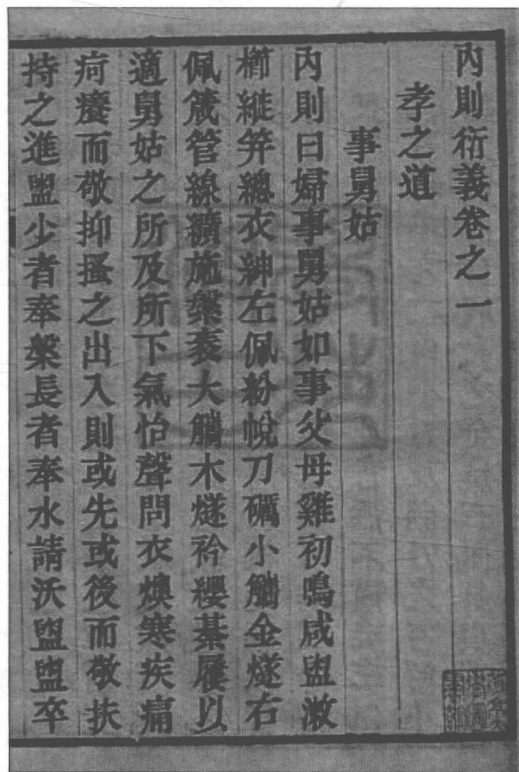 內則衍義卷之一
孝之道
事舅姑
內則曰婦事舅姑如事父母雞初鳴咸盥漱
櫛縰笄總衣紳左佩紛帨刀礪小觿金燧右
佩箴管線纊施縏袠大觿木燧衿纓綦屨以
適舅姑之所及所下氣怡聲問衣燠寒疾痛
疴癢而敬抑搔之出入則或先或後而敬扶
持之進盥少者奉槃長者奉水請沃盥盥卒